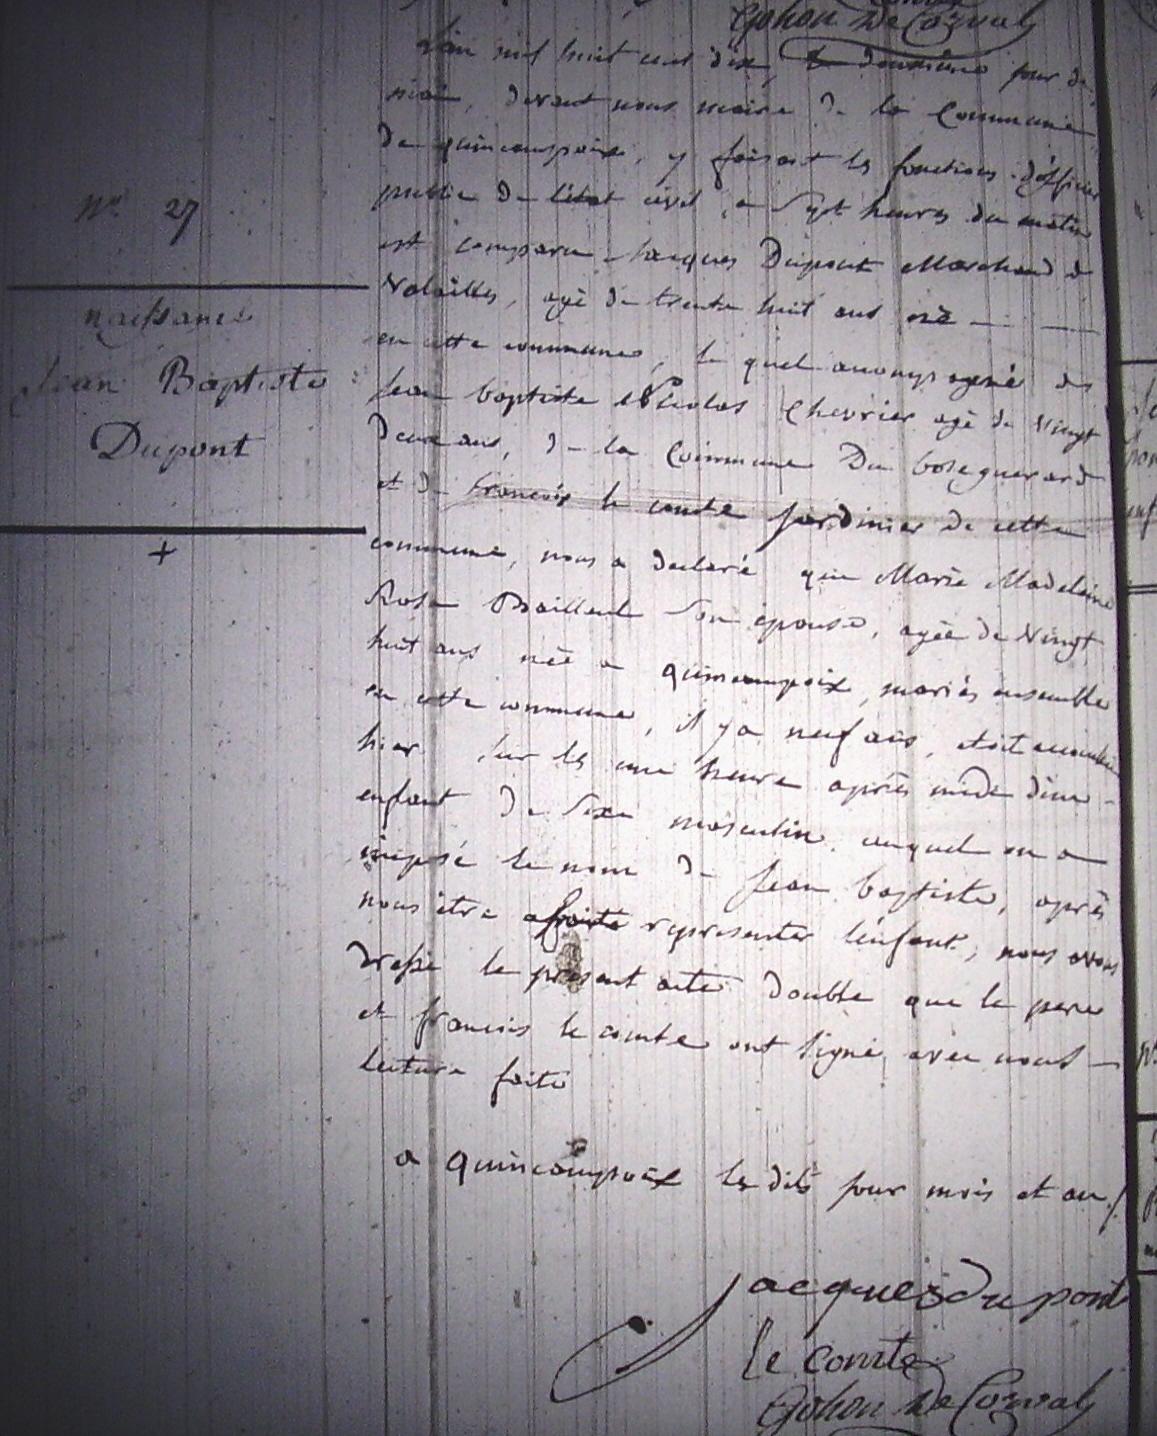 Gohon De Corval
L'an mil huit cent dix, le douzieme jour de
mai, devant nous maire de la Commune
de quincampoix, y faisant les fonctions d'officier
public de l'état civil, a sept heures du matin
est comparu Jacques Dupont Marchand de
Volailles, agé de trente huit ans né
en cette commune, le quel accompagné de
Jean baptiste Nicolas Chevrier agé de vingt
deux ans, de la Commune Du bosguerard
et de francois le comte Jardinier de cette
commune, nous a declaré que Marie Madeleine
Rose Bailleul son épouse, agée de vingt
huit ans née a quincampoix, mariés ensemble
en cette commune, il y a neuf ans, etoit accouchée
hier sur les une heure après midi d'un
enfant de sexe masculin auquel on a
imposé le nom de Jean baptiste, après
nous être fait representer l'enfant, nous avons
dressé le present acte double que le pere
et francois le comte ont signé avec nous
lecture faite
a quincampoix les dits jour mois et an
Jacques Dupont
le comte
Gohon De Corval
No 27
naissance
Jean Baptiste
Dupont
+